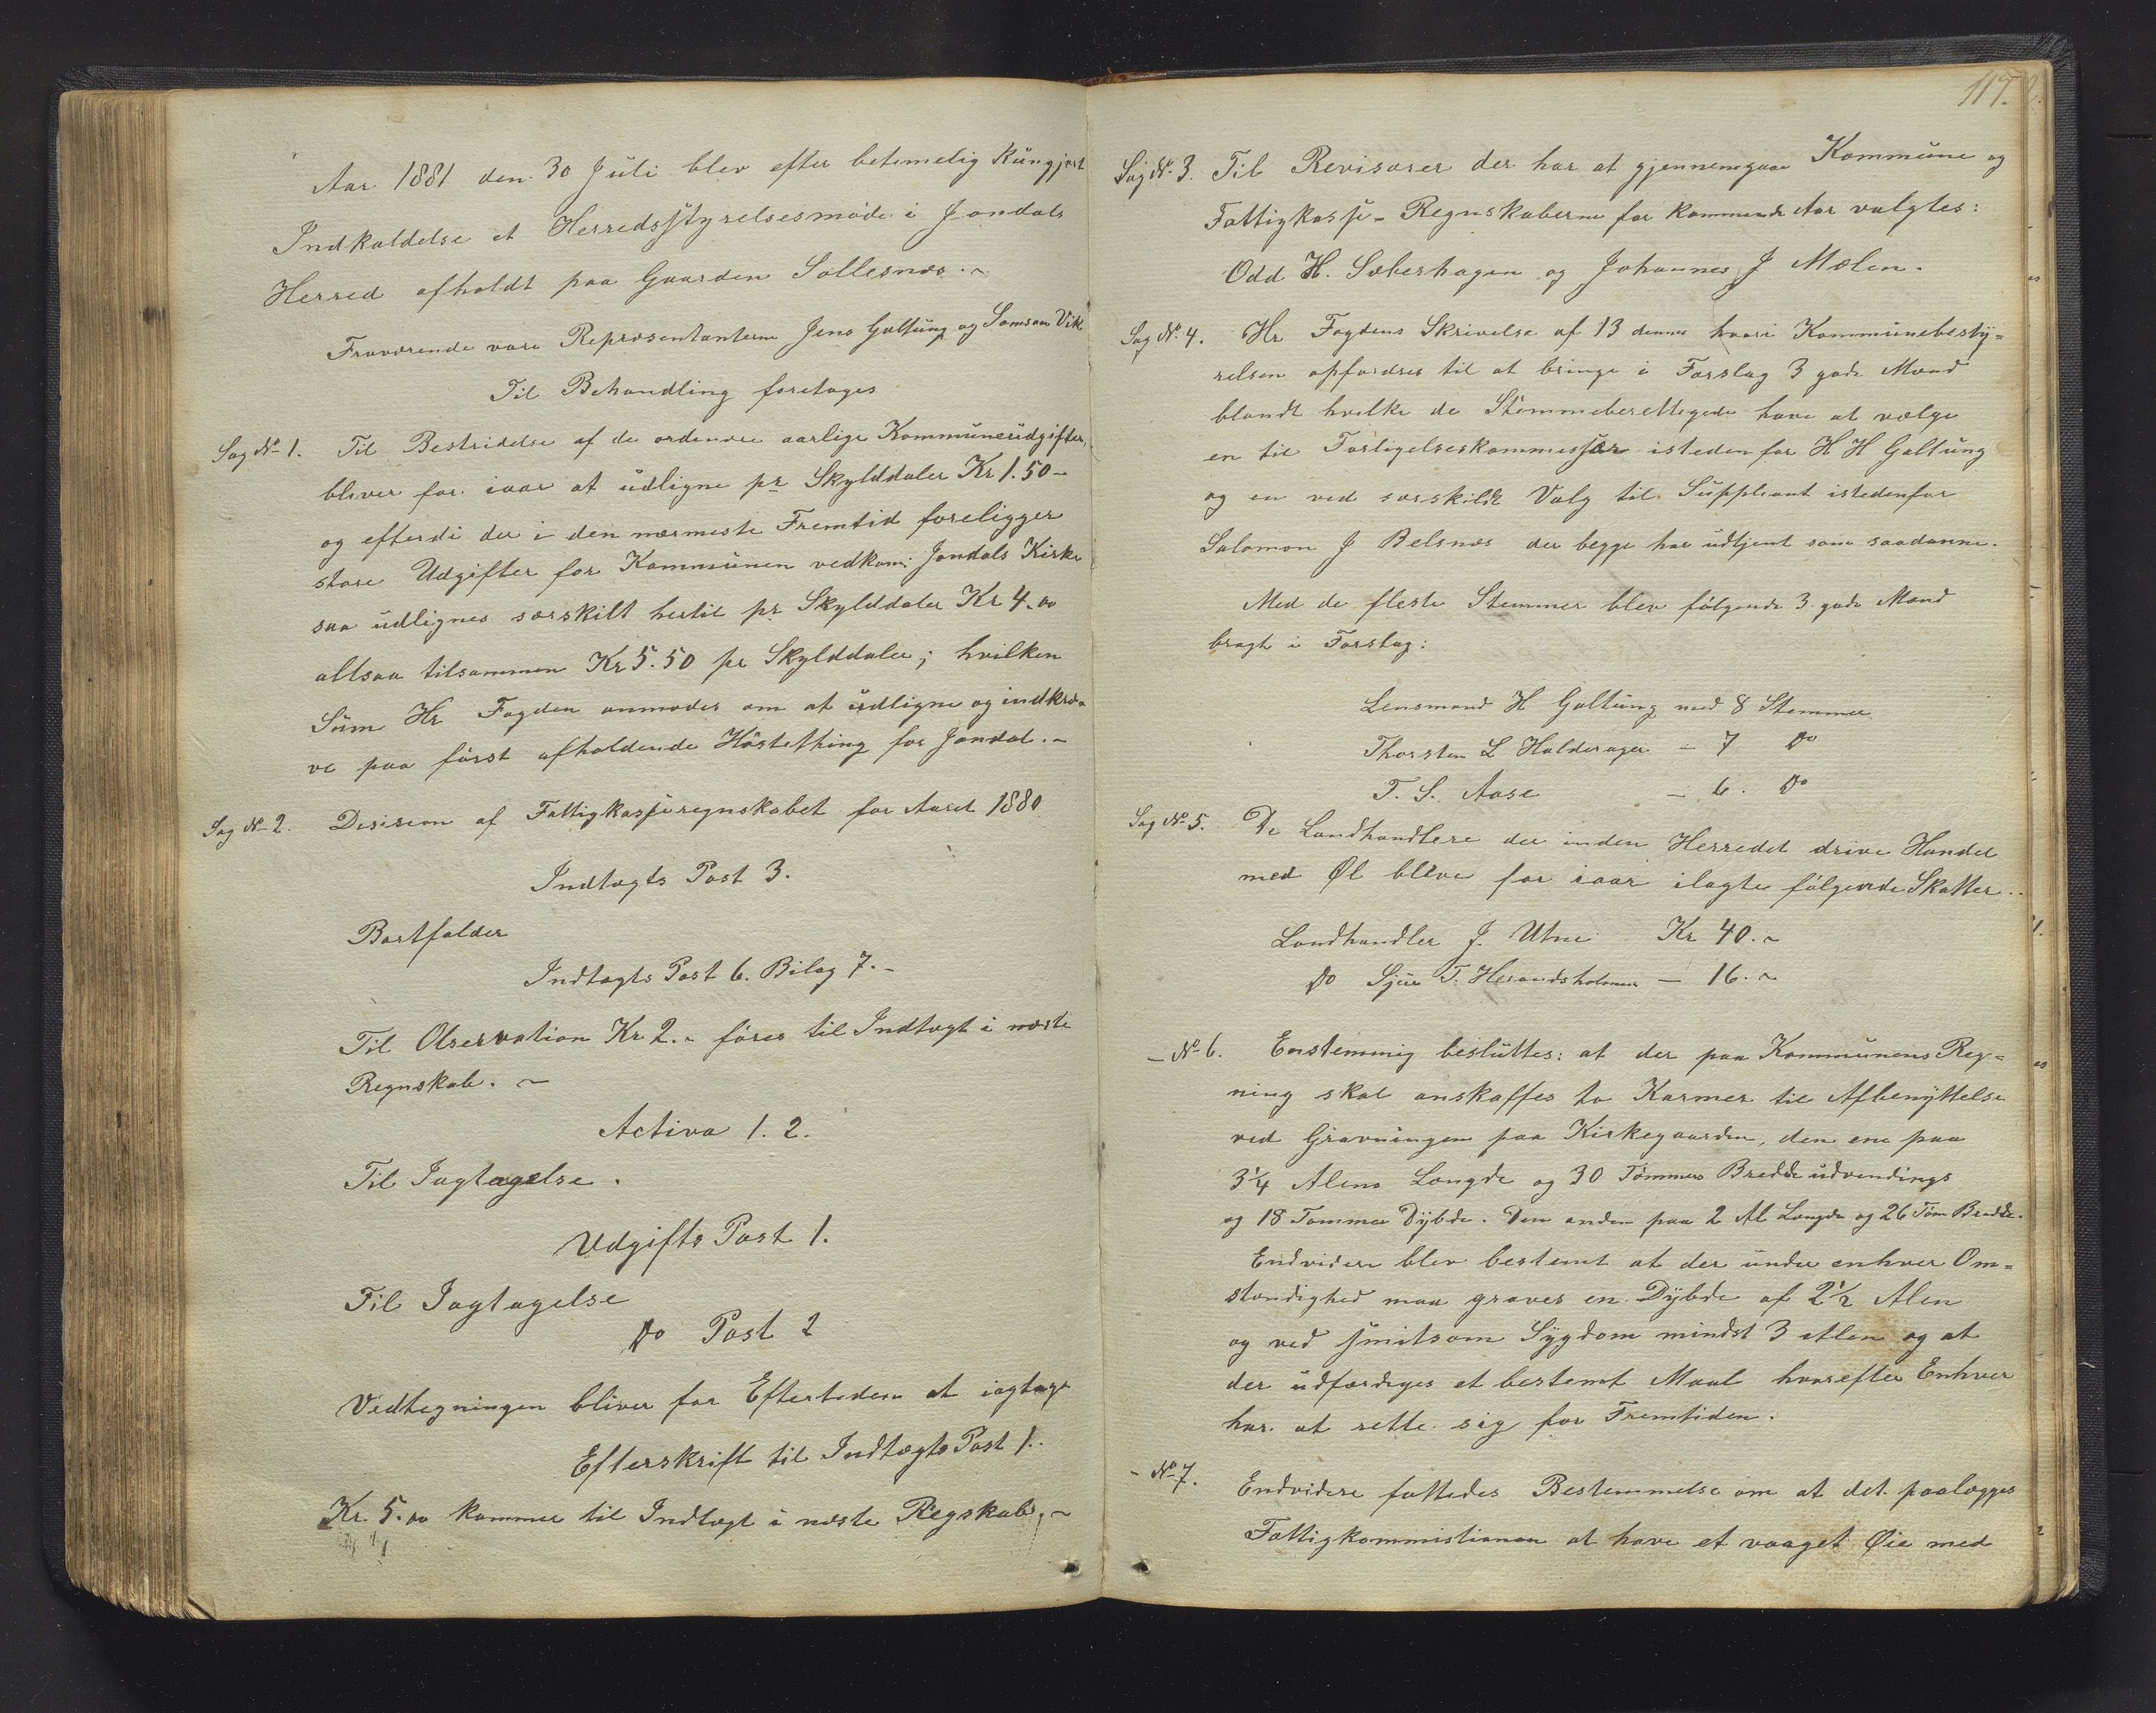 Aar 1881 den 30 Juli blev efter betimelig Küngjort
Indkaldelse et Herredsstyrelsesmøde i Jondals
Herred afholdt paa Gaarden Sollesnæs. ~
Fraværende vare Repræsentanterne Jens Galtüng og Samson Vik
Til Behandling foretages
Sag No 1. Til Bestridelse af de ordenære aarlige Kommüneüdgifter,
bliver for iaar at üdligne pr Skylddaler Kr 1.50 -
og efterdi der i den nærmeste Fremtid foreligger
store Udgifter for Kommünen vedkom: Jondals Kirke
saa üdlignes særskilt hertil pr Skylddaler Kr 4.00
altsaa tilsammen Kr 5.50 pr Skylddaler; hvilken
Süm Hr Fogden anmodes om at üdligne og indkræ-
ve paa først afholdende Høstething for Jondal. ~
Sag No 2. Desision af Fattigkasseregnskabet for Aaret 1880
Indtægts Post 3.
Bortfalder
Indtægts Post 6. Bilag 7. -
Til Olservation Kr 2. ~ føres til Indtægt i næste
Regnskab. ~
Activa 1. 2.
Til Iagtagelse.
Udgifts Post 1.
Til Iagtagelse
Do Post 2
Vedtegningen bliver for Eftertiden at iagtage
Efterskrift til Indtægts Post 1.
Kr. 5.00 kommer til Indtægt i næste Regskab. ~
117.
Sag No 3. Til Revisorer der har at gjennemgaae Kommüne og
Fattigkasse-Regnskaberne for kommende Aar valgtes:
Odd H. Sæbershagen og Johannes J Mælen.
Sag No 4. Hr Fogdens Skrivelse af 13 dennes hvori Kommünebestÿ=
relsen opfordres til at bringe i Forslag 3 gode Mænd
blandt hvilke de Stemmeberettigede have at vælge
en til Forligelseskommissær istedenfor H H Galtüng
og en ved særskildt Valg til Süppleant istedenfor
Salomon J Belsnæs der begge har üdtjent som saadanne.
Med de fleste Stemmer blev følgende 3 gode Mænd
bragt i Forslag:
Lensmand H Galtüng med 8 Stemmer
Thorsten L Halderager - 7 Do
T. S. Aase - 6. Do
Sag No 5. De Landhandlere der inden Herredet drive Handel
med Øl bleve for iaar ilagte følgende Skatter.
Landhandler J. Utne Kr 40. ~
Do Sjür T. Herandsholmen - 16. ~
- No 6. Enstemmig beslüttes: at der paa Kommünens Reg=
ning skal anskaffes to Karmer til Afbenÿttelse
ved Gravningen paa Kirkegaarden, den ene paa
3 1/4 Alens Længde og 30 Tommers Bredde üdvendings
og 18 Tommer Dÿbde. Den anden paa 2 Al Længde og 26 Tom Bredde.
Endvidere blev bestemt at der ünder enhver Om=
stændighed maa graves en Dÿbde af 2 1/2 Alen
og ved smitsom Sÿgdom mindst 3 Alen og at
der üdfærdiges et bestemt Maal hvorefter Enhver
har at rette sig for Fremtiden.
- No 7. Endvidere fattedes Bestemmelse om at det paalægges
Fattigkommistionen at have et vaaget Øie med